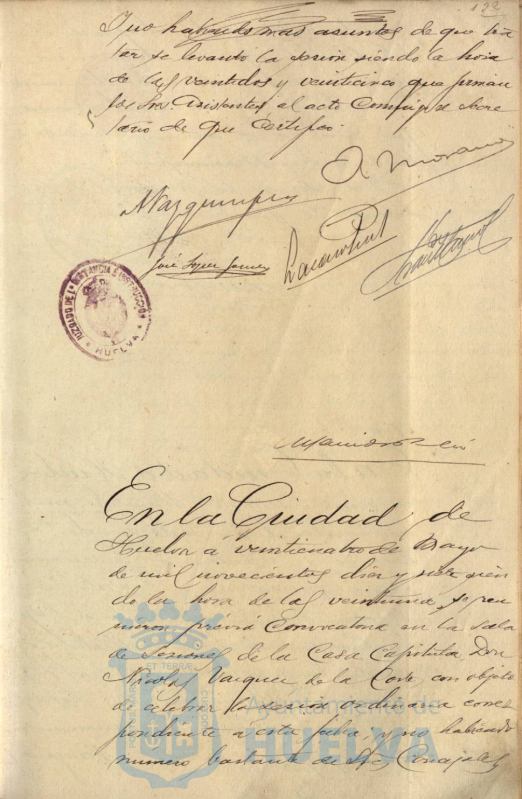 122
Y no habiendo mas asuntos de que tra
tar se levantó la sesion siendo la hora
de las veintidos y veinticinco que firman
los Sres Asistentes al acto Conmigo el Secre
tario de que Certifico.
A. Moreno
Vazquez
José Lopez Gomez
JUZGADO DE 1ª INSTANCIA E INSTRUCCION
* HUELVA *
En la Ciudad de
Huelva á veinticuatro de Mayo
de mil novecientos diez y siete sien
do la hora de las veintiuna, se reu
nieron previa Convocatoria en la Sala
de Sesiones de la Casa Capitular Don
Nicolas Vazquez de la Corte con objeto
de celebrar la sesion ordinaria corres
pondiente á esta fecha, y no habiendo
numero bastante de Sres Concejales
PORTUS MARIS ET TERRÆ CUSTODIA
Ayuntamiento de
HUELVA